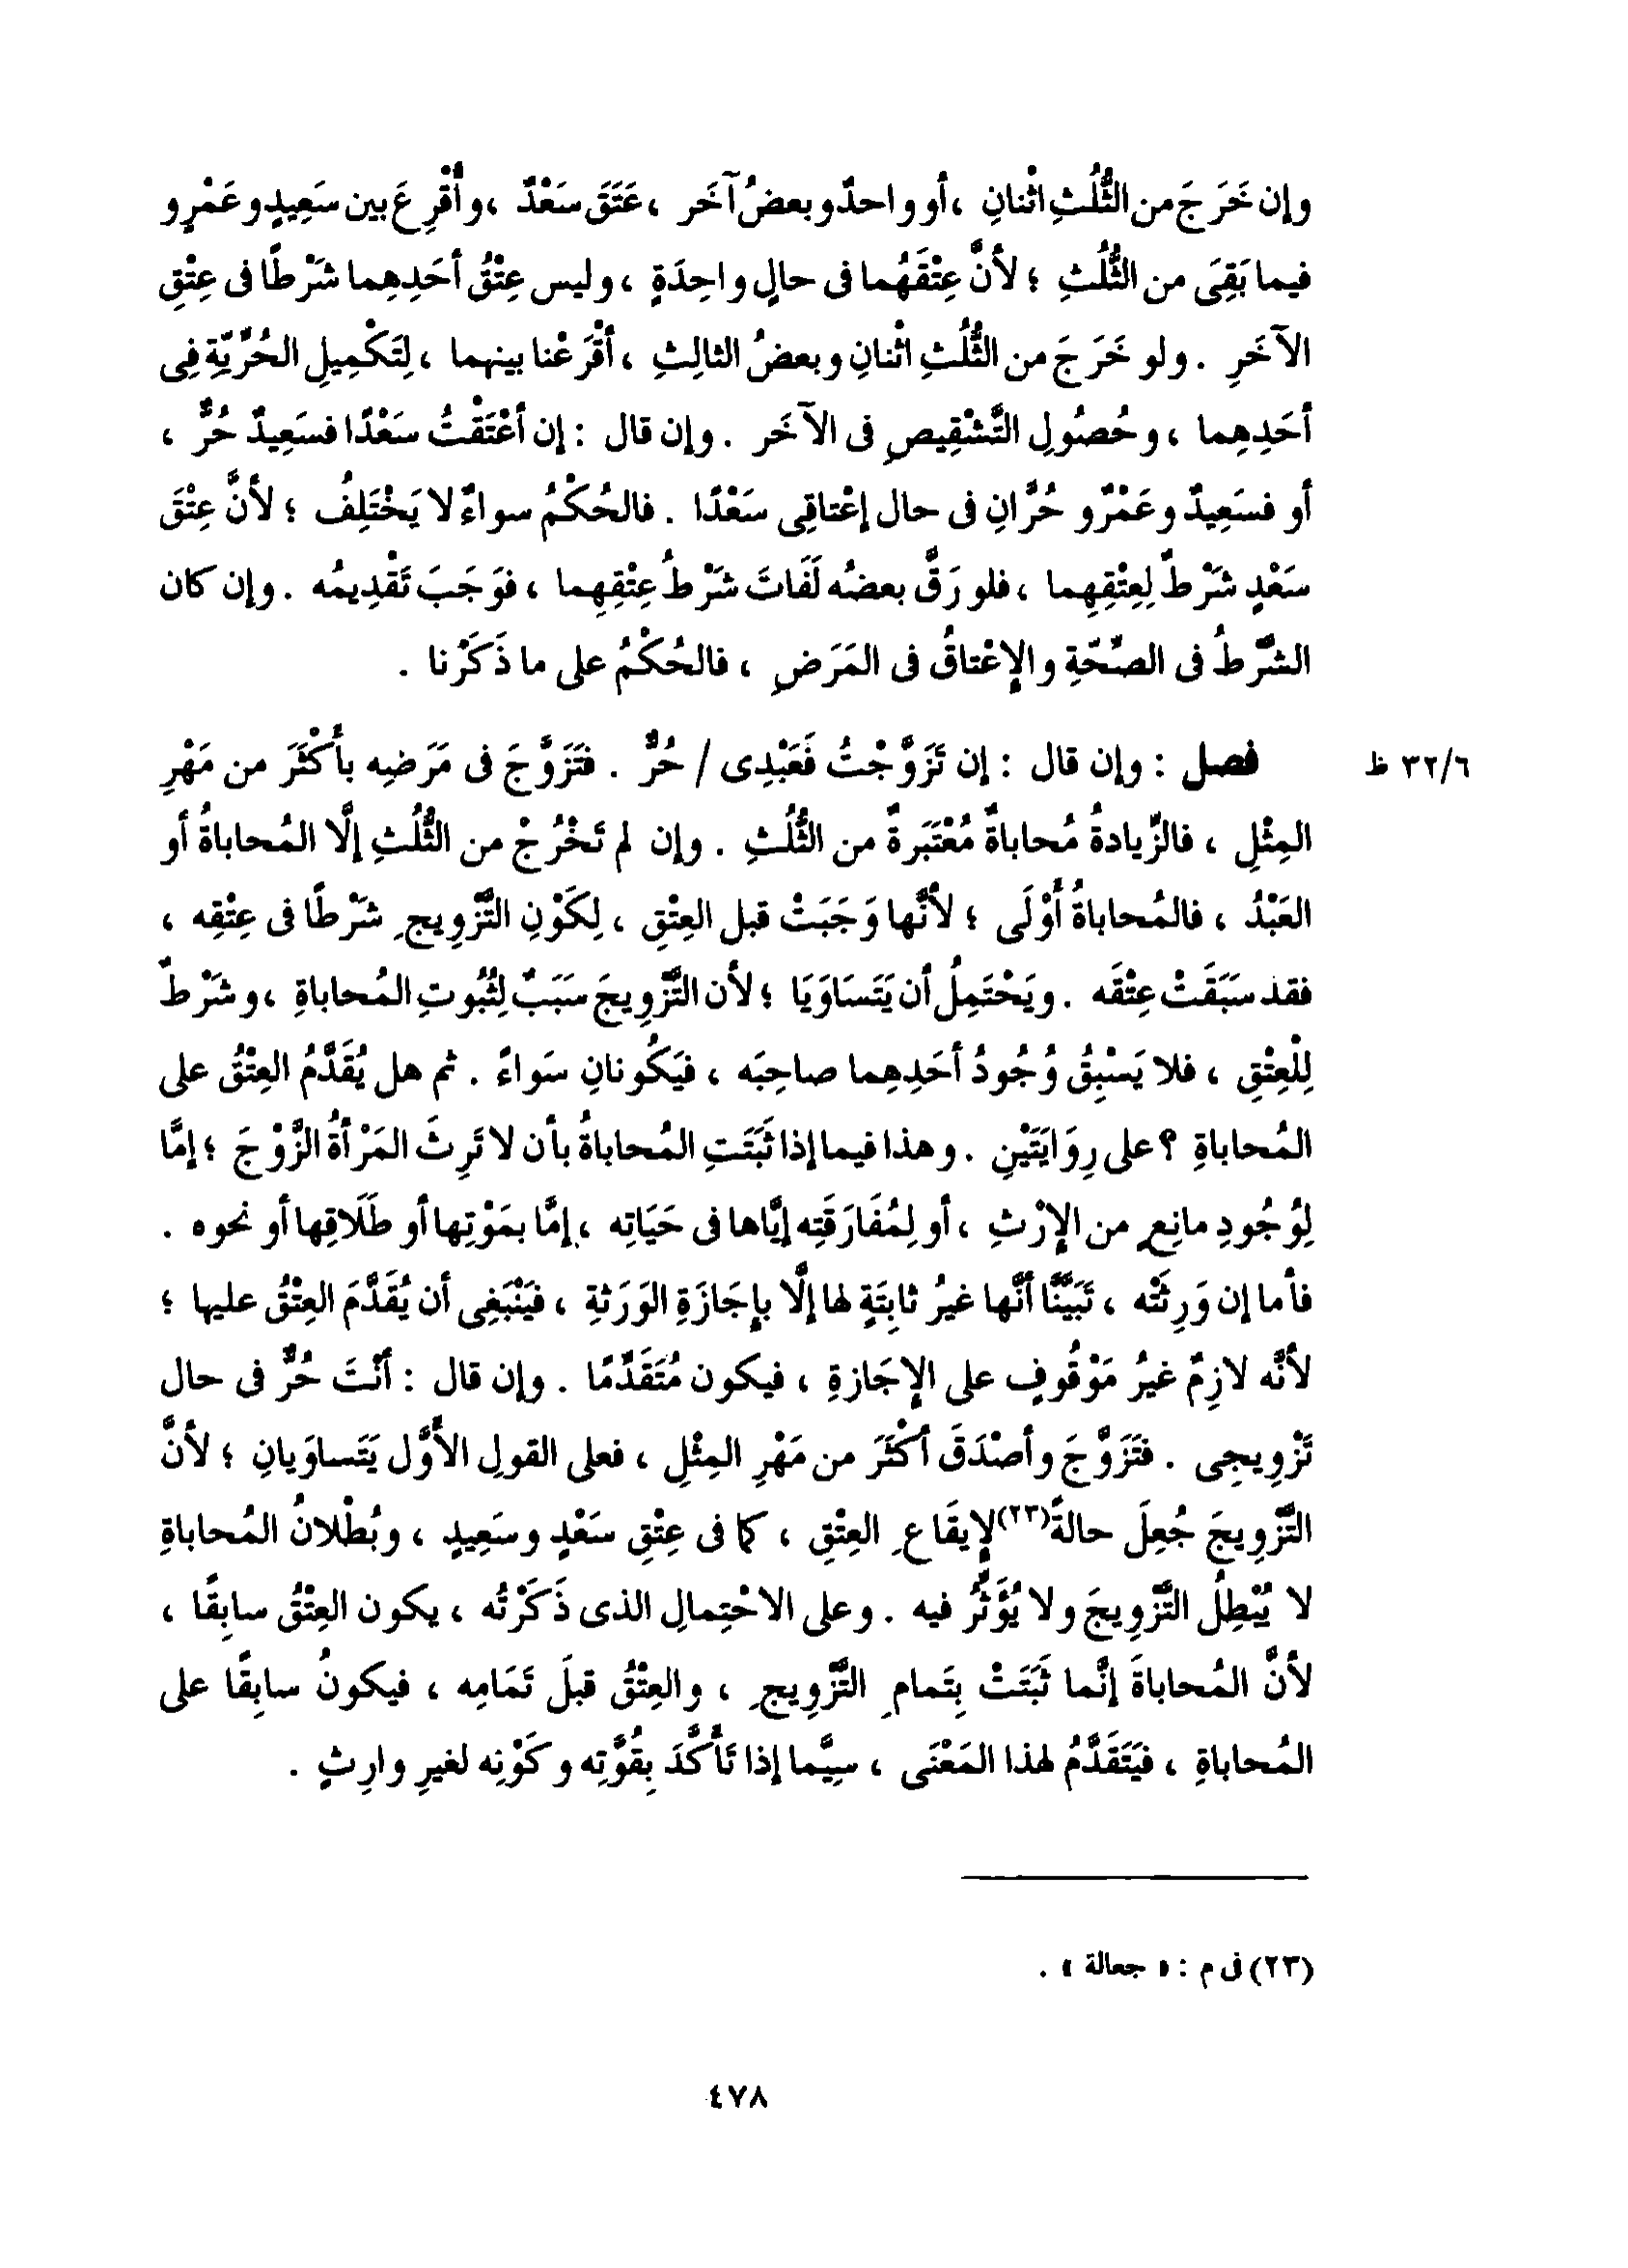 وإن خَرَجَ من الثُّلُثِ اثْنانِ ، أو واحدٌ وبعضُ آخَر ، عَتَقَ سَعْدٌ ، وأُقْرِعَ بين سَعِيدٍ وعَمْرٍو
فيما بَقِىَ من الثُّلُثِ ؛ لأنَّ عِتْقَهُما فى حالٍ واحِدَةٍ ، وليس عِتْقُ أحَدِهِما شَرْطًا فى عِتْقِ
الآخَرِ . ولو خَرَجَ من الثُّلُثِ اثْنانِ وبعضُ الثالِثِ ، أقْرَعْنا بينهما ، لِتَكْمِيلِ الحُرِّيّةِ فِى
أحَدِهِما ، وحُصُولِ التَّشْقِيصِ فى الآخَر . وإن قال : إن أعْتَقْتُ سَعْدًا فسَعِيدٌ حُرٌّ ،
أو فسَعِيدٌ وعَمْرٌو حُرَّانِ فى حال إعْتاقِى سَعْدًا . فالحُكْمُ سواءٌ لا يَخْتَلِفُ ؛ لأنَّ عِتْقَ
سَعْدٍ شَرْطٌ لِعِتْقِهِما ، فلو رَقَّ بعضُه لَفَاتَ شَرْطُ عِتْقِهِما ، فوَجَبَ تَقْدِيمُه . وإن كان
الشَّرْطُ فى الصِّحَّةِ والإِعْتاقُ فى المَرَضِ ، فالحُكْمُ على ما ذَكَرْنا .
فصل : وإن قال : إن تَزَوَّجْتُ فَعَبْدِى / حُرٌّ . فتَزَوَّجَ فى مَرَضِه بأكْثَرَ من مَهْرِ
٣٢/٦ ظ
المِثْلِ ، فالزِّيادةُ مُحاباةٌ مُعْتَبَرةٌ من الثُّلُثِ . وإن لم تَخْرُجْ من الثُّلُثِ إلَّا المُحاباةُ أو
العَبْدُ ، فالمُحاباةُ أوْلَى ؛ لأنَّها وَجَبَتْ قبل العِتْقِ ، لِكَوْنِ التَّزْوِيجِ شَرْطًا فى عِتْقِه ،
فقد سَبَقَتْ عِتْقَه . ويَحْتَمِلُ أن يَتَسَاوَيَا ؛ لأن التَّزْوِيجَ سَبَبٌ لِثُبُوتِ المُحاباةِ ، وشَرْطٌ
لِلْعِتْقِ ، فلا يَسْبِقُ وُجُودُ أحَدِهِما صاحِبَه ، فيَكُونانِ سَواءً . ثم هل يُقَدَّمُ العِتْقُ على
المُحاباةِ ؟ على رِوَايَتَيْنِ . وهذا فيما إذا ثَبَتَتِ المُحاباةُ بأن لا تَرِثَ المَرْأةُ الزَّوْجَ ؛ إمَّا
لِوُجُودِ مانِعٍ من الإِرْثِ ، أو لِمُفَارَقَتِه إيَّاها فى حَيَاتِه ، إمَّا بمَوْتِها أو طَلَاقِها أو نحوه .
فأما إن وَرِثَتْه ، تَبَيَّنَّا أنَّها غيرُ ثابِتَةٍ لها إلَّا بإجَازَةِ الوَرَثةِ ، فيَنْبَغِى أن يُقَدَّمَ العِتْقُ عليها ؛
لأنَّه لازِمٌ غيرُ مَوْقُوفٍ على الإِجَازةِ ، فيكون مُتَقَدِّمًا . وإن قال : أنْتَ حُرٌّ فى حال
تَزْوِيجِى . فتَزَوَّجَ وأصْدَقَ أكْثَرَ من مَهْرِ المِثْلِ ، فعلى القولِ الأوَّل يَتَساوَيانِ ؛ لأنَّ
التَّزْوِيجَ جُعِلَ حالةً(٢٣) لإِيقَاعِ العِتْقِ ، كما فى عِتْقِ سَعْدٍ وسَعِيدٍ ، وبُطْلانُ المُحاباةِ
لا يُبْطِلُ التَّزْوِيجَ ولا يُؤَثِّرُ فيه . وعلى الاحْتِمالِ الذى ذَكَرْتُه ، يكون العِتْقُ سابِقًا ،
لأنَّ المُحاباةَ إنَّما ثَبَتَتْ بِتَمامِ التَّزْوِيجِ ، والعِتْقُ قبلَ تَمَامِه ، فيكونُ سابِقًا على
المُحاباةِ ، فيَتَقَدَّمُ لهذا المَعْنَى ، سِيَّما إذا تَأكَّدَ بِقُوَّتِه وكَوْنِه لغيرِ وارِثٍ .
(٢٣) فى م : « جعالة » .
٤٧٨